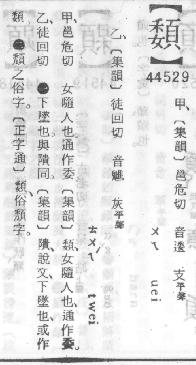 【䫋】
44529
甲、〔集韻〕邕危切 音逶 支平聲
ㄨㄟ uei
乙、〔集韻〕徒回切 音魋 灰平聲
ㄊㄨㄟ twei
甲、邕危切 女隨人也。通作委。〔集韻〕䫋、女隨人也、通作委。
乙、徒回切 ㊀下墜也。與隤同。〔集韻〕隤、說文、下墜也、或作
䫋。㊁頹之俗字。〔正字通〕䫋、俗頹字。